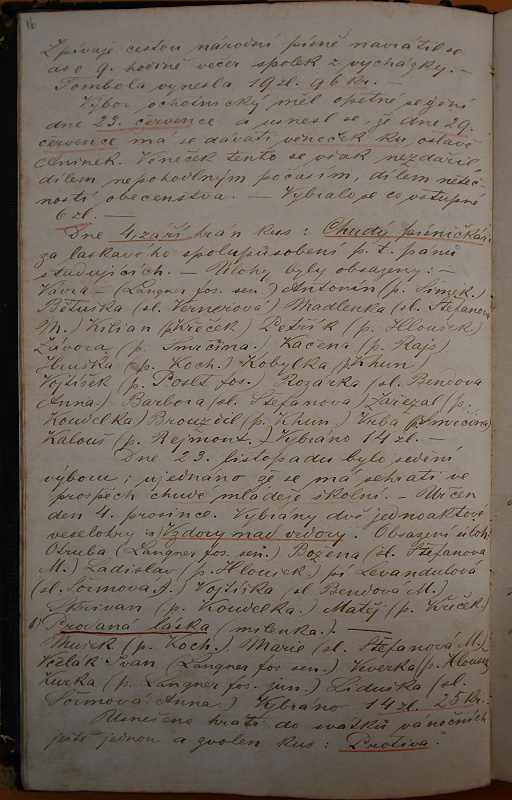 16
Zpívaje cestou národní písně navrátil se
as o 9. hodině večer spolek z vycházky. –
Tombola vynesla 19 zl. 96 kr. –
Výbor ochotnický měl opětně sezení
dne 23. července a usnesl se, že dne 29.
července má se dávati věneček ku oslavě
Aninek. Věneček tento se však nezdařil
dílem nepohodlným počasím, dílem neteč-
ností obecenstva. – Vybralo se co vstupné
6 zl. –
Dne 4. září hrán kus: Chudý písničkář
za laskavého spolupůsobení p. t. pánů
studujících. – Úlohy byly obsazeny: –
Vávra – (Langner fos. sen.) Antonín (p. Šimek.)
Bětuška (sl. Vernerová) Madlenka (sl. Štefanova
M.) Kilian (p. Křeček) Petřík (p. Hloušek.)
Závora (p. Smrčina.) Kačena (p. Rajs)
Hruška (p. Koch.) Kobylka (p. Khun)
Vojtíšek (p. Poslt fos.) Rozárka (sl. Bendova
Anna.) Barbora (sl. Štefanova) Zařezal (p.
Koudelka) Brouzdil (p. Khun.) Vrba (p. Smrčina)
Kalous (p. Rejmont.) Vybráno 14 zl. –
Dne 23. listopadu bylo sezení
výboru; ujednáno že se má sehrati ve
prospěch chudé mládeže školní. – Určen
den 4. prosince. Vybrány dvě jednoaktové
veselohry a) Vzdory nad vzdory. Obsazení úloh:
Otruba (Langner fos. sen.) Božena (sl. Štefanova
M.) Ladislav (p. Hloušek.) pí Levandulová
(sl. Šormova.) Vojtíška (sl Bendova M.)
Skřivan (p. Koudelka.) Matěj (p. Křeček)
b) Prodaná láska (milenka.). –
(p. Koch.) Marie (sl. Štefanová M.)
Včelák Ivan (Langner fos sen.) Veverka (p. Hloušek
Kurka (p. Langner fos. jun.) Liduška (sl.
Šormová Anna.) Vybráno 14 zl. 25 kr.
Usnešeno hráti do svátků vánočních
ještě jednou a zvolen kus: "Protiva".